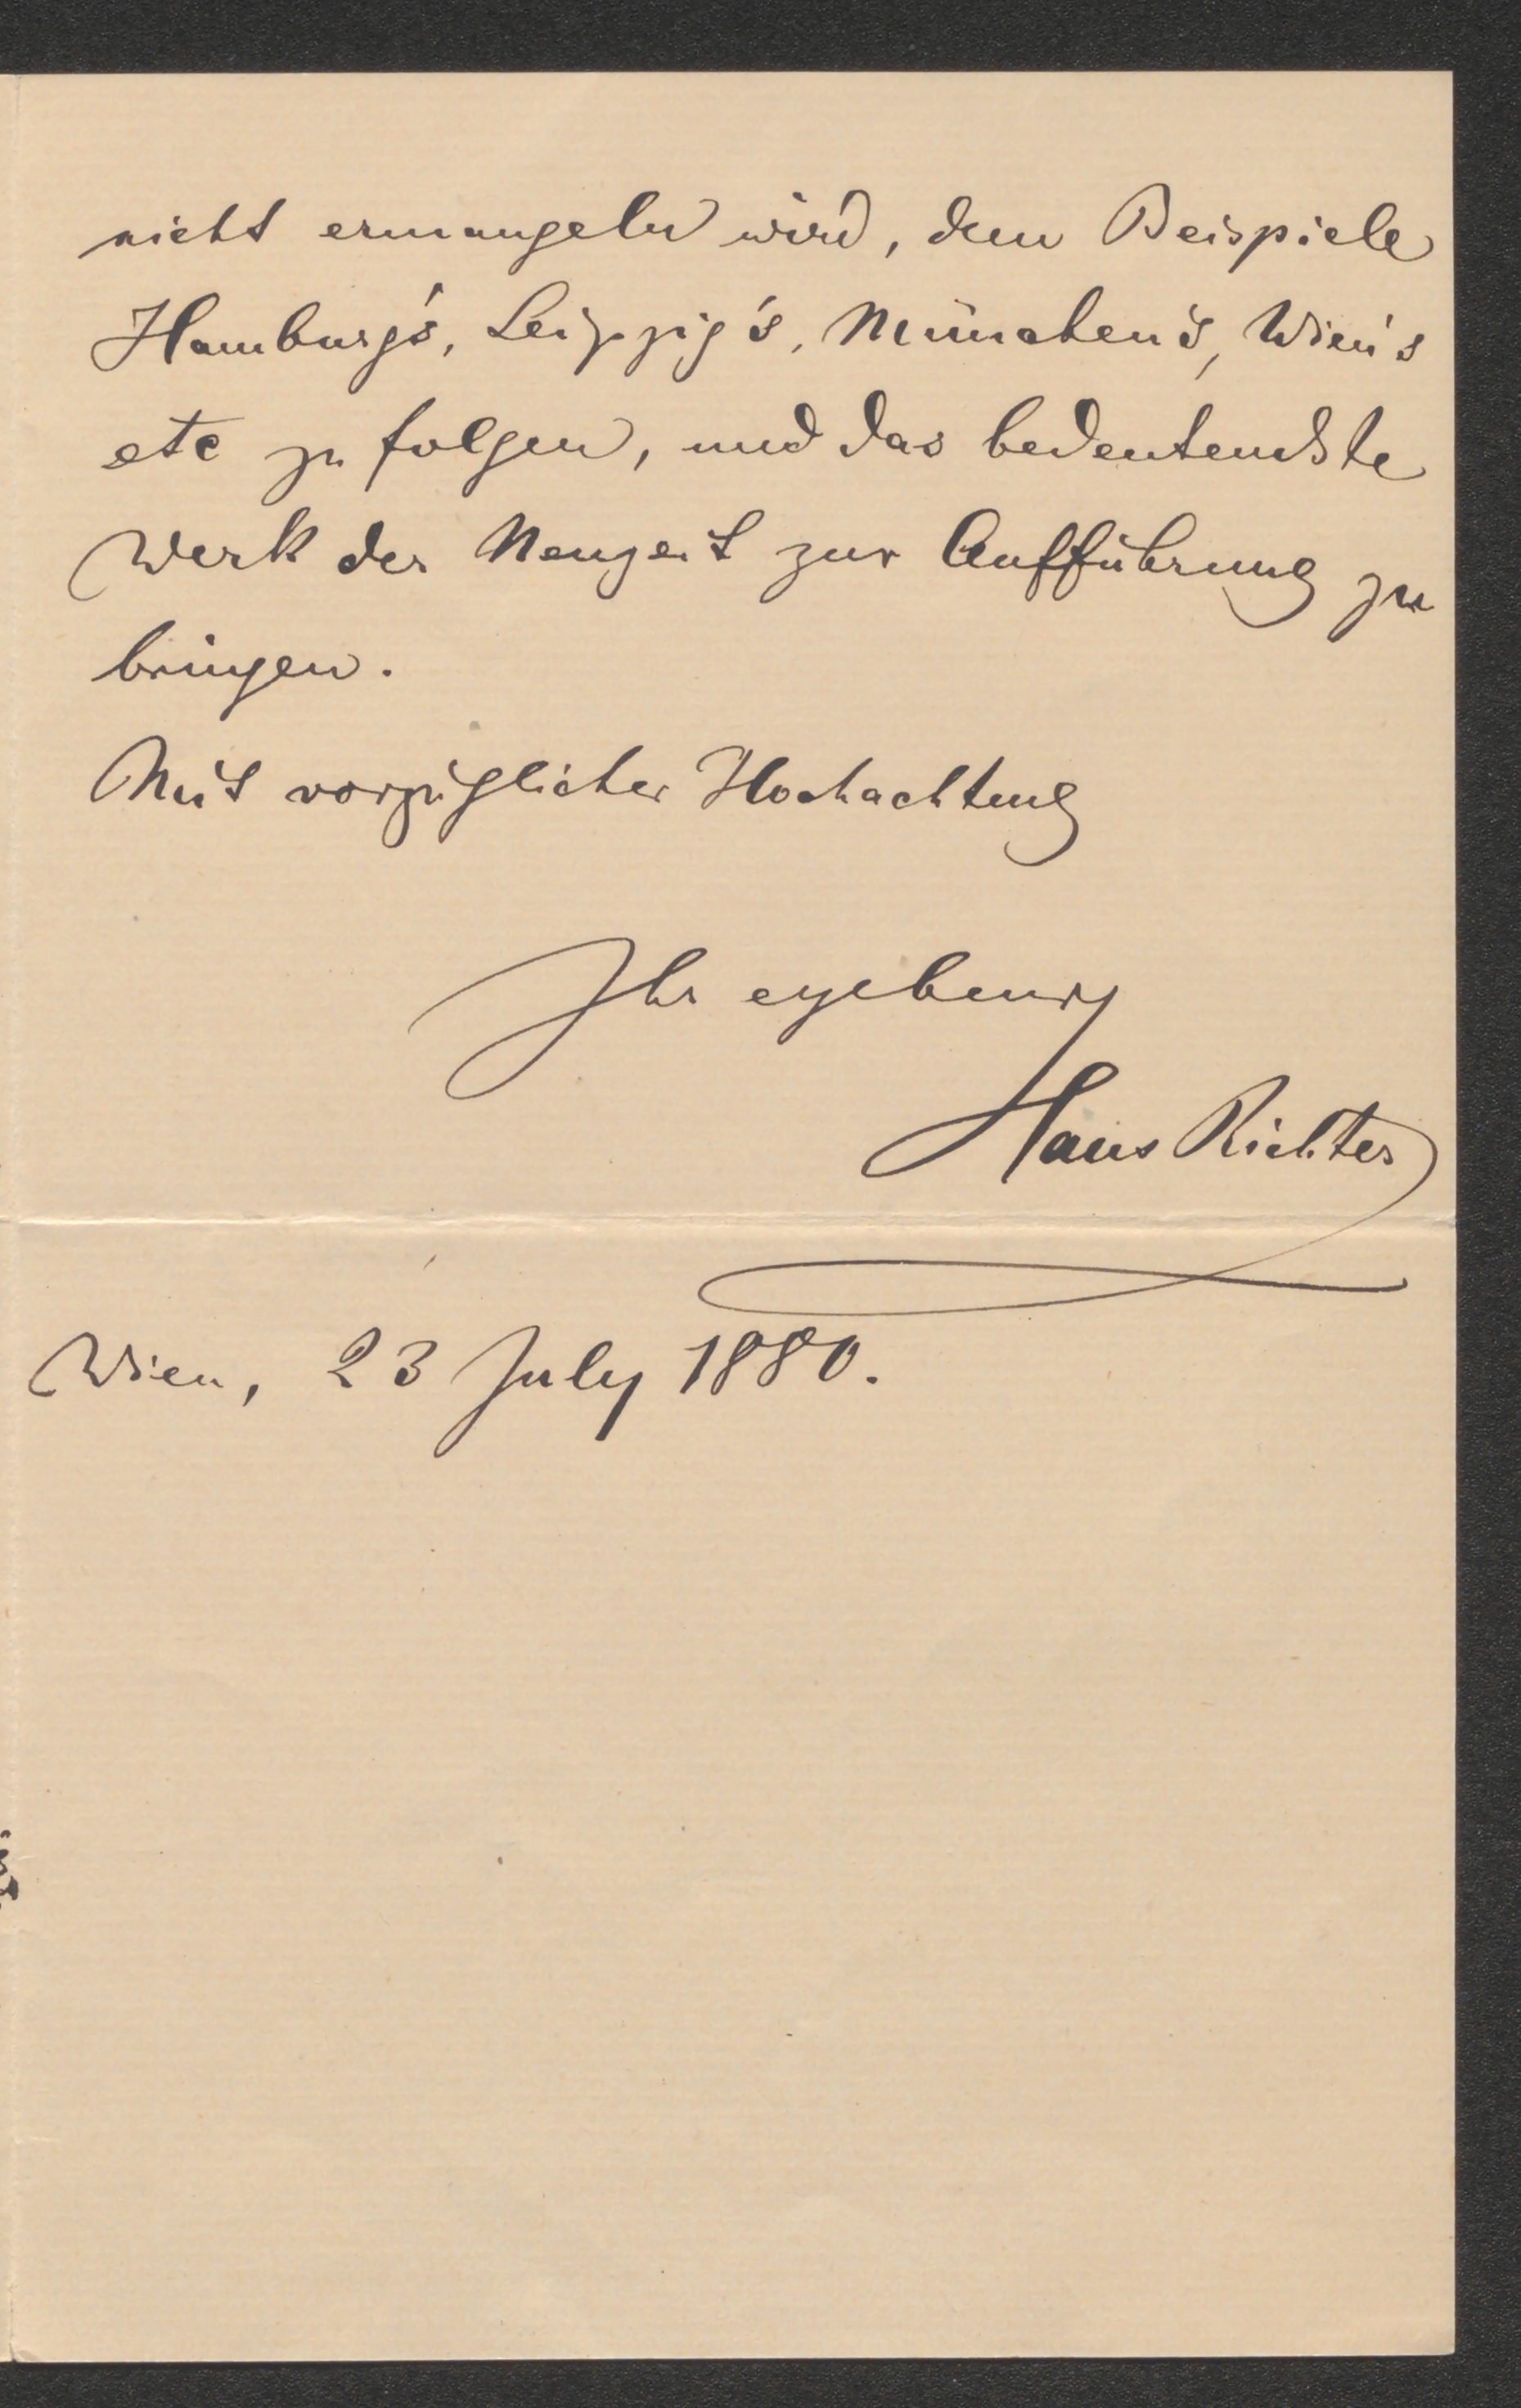 nicht ermangeln wird, dem Beispiele
Hamburg's, Leipzig's, München's, Wien's
etc zu folgen, und das bedeutendste
Werk der Neuzeit zur Aufführung zu
bringen.
Mit vorzüglicher Hochachtung
Ihr ergebener
Hans Richter
Wien, 23 July 1880.